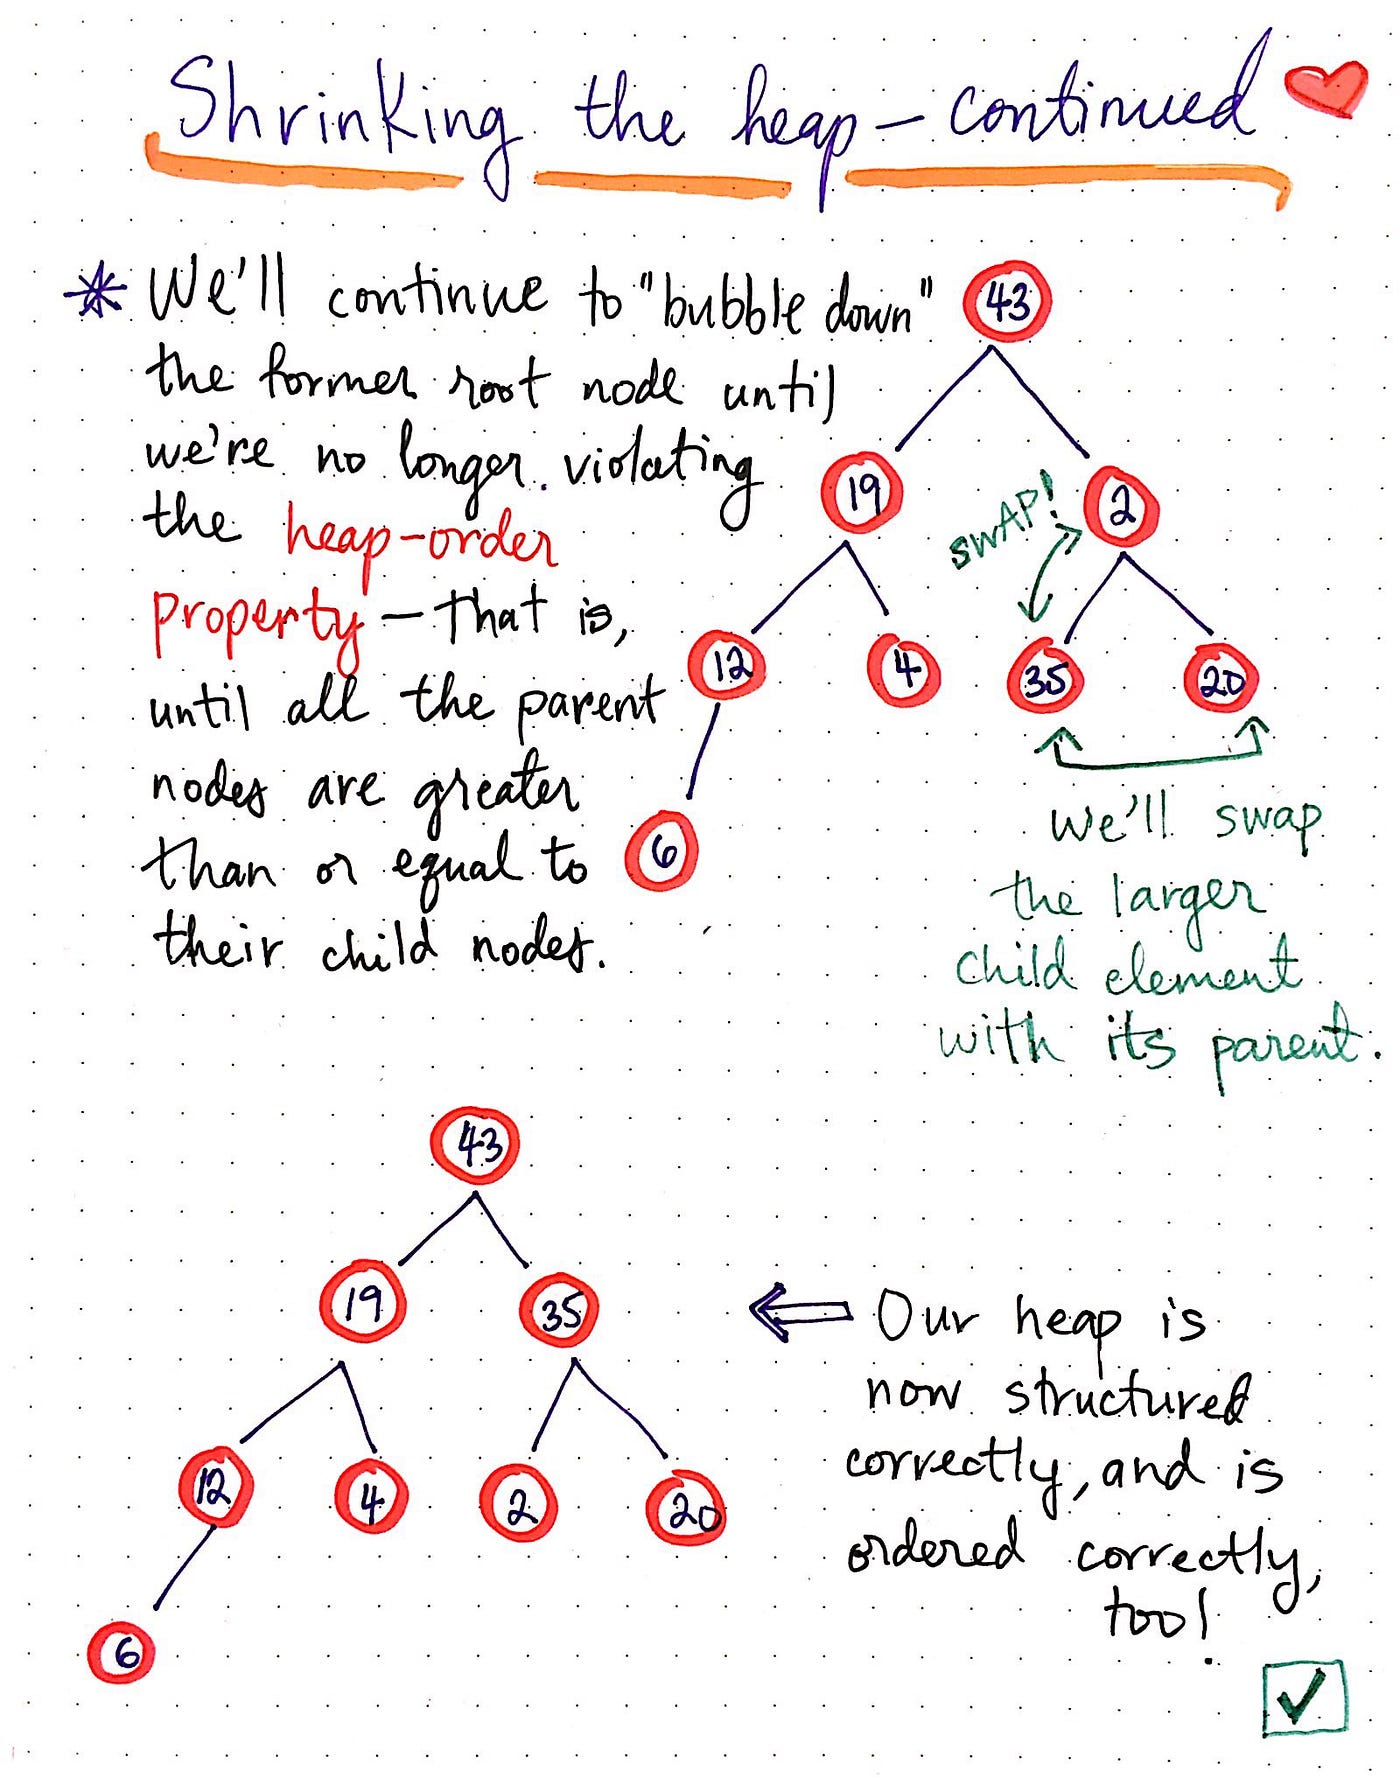 Shrinking the heap – continued
* We'll continue to "bubble down"
the former root node until
we're no longer violating
the heap-order
property – that is,
until all the parent
nodes are greater
than or equal to
their child nodes.
43
19
2
SWAP!
12
4
35
20
6
We'll swap
the larger
child element
with its parent.
43
19
35
12
4
2
20
6
Our heap is
now structured
correctly, and is
ordered correctly,
too!